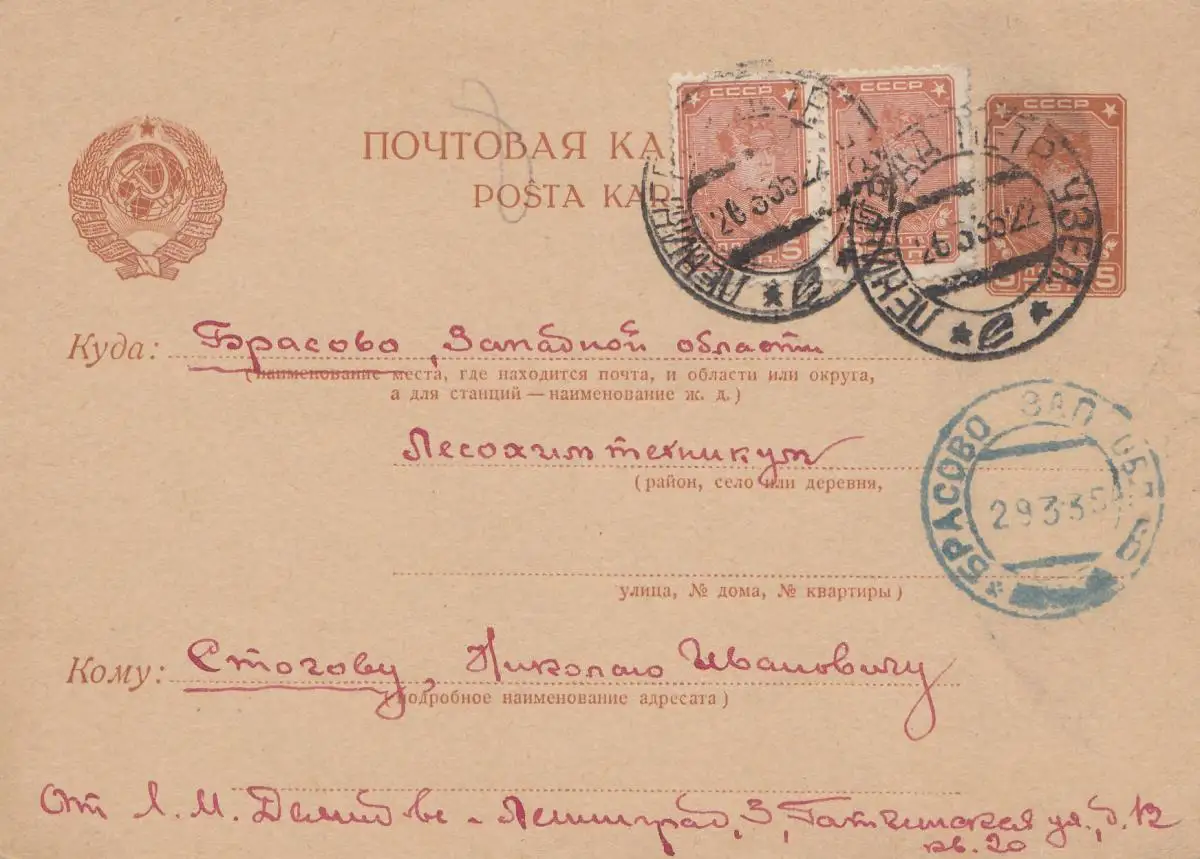 СССР
СССР
СССР
ПОЧТОВАЯ КА
POŜTA KAR
5
5
5 5
ЛЕНИНГРАД
26 3 35 22
ЛЕНИНГРАД ЦТР УЗЕЛ
26 3 35 22
Куда: Брасово, Западной области
(наименование места, где находится почта, и области или округа,
а для станций — наименование ж. д.)
Лесохимтехникум
(район, село или деревня,
БРАСОВО ЗАП ОБЛ
29 3 35
улица, № дома, № квартиры)
Кому: Стогову, Николаю Ивановичу
(подробное наименование адресата)
От Л. М. Ленинград, 3, Гатчинская ул., д. 12
кв. 20